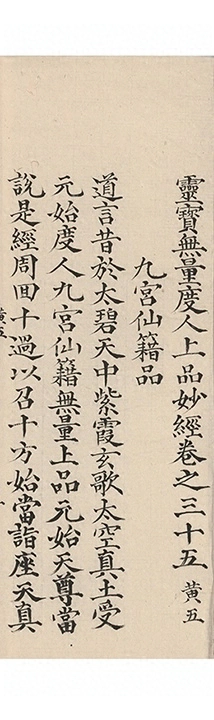 靈寶無量度人上品妙經卷之三十五 黃五
九宮仙籍品
道言昔於太碧天中紫霞玄歌太空真土受
元始度人九宮仙籍無量上品元始天尊當
說是經周回十過以召十方始當詣座天真
黃五